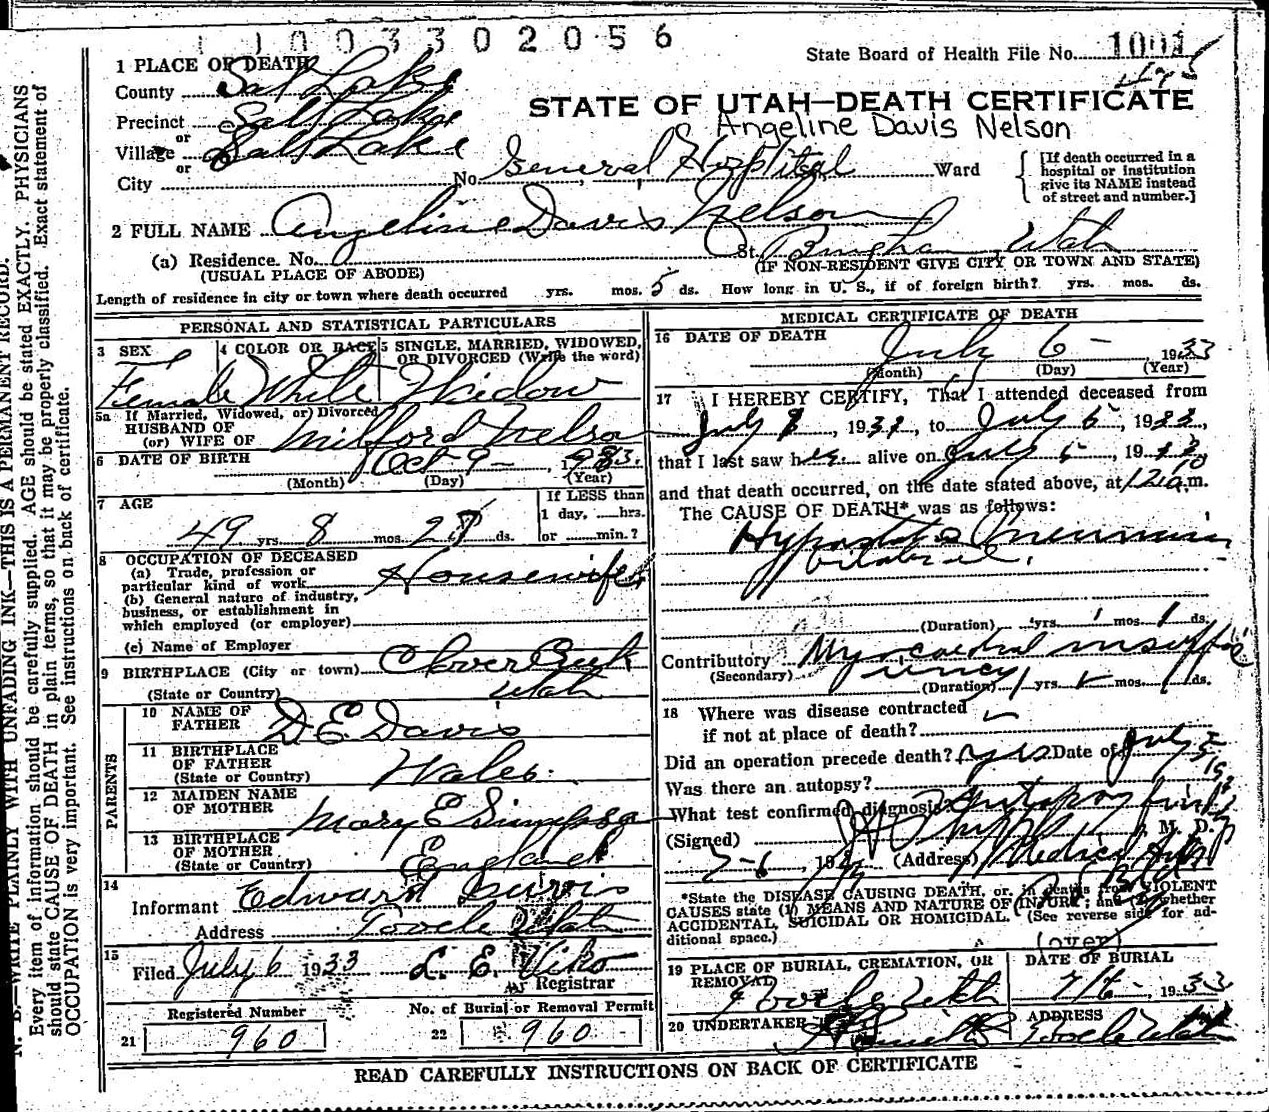 1 1 0 0 3 3 0 2 0 5 6
State Board of Health File No. 1001
475
1 PLACE OF DEATH
County Salt Lake
STATE OF UTAH—DEATH CERTIFICATE
Precinct Salt Lake
Angeline Davis Nelson
or
Village Salt Lake
or
City
No. General Hospital Ward
[If death occurred in a hospital or institution give its NAME instead of street and number.]
2 FULL NAME Angeline Davis Nelson
(a) Residence. No. St. Bingham Utah
(USUAL PLACE OF ABODE) (IF NON-RESIDENT GIVE CITY OR TOWN AND STATE)
Length of residence in city or town where death occurred yrs. mos. 5 ds. How long in U. S., if of foreign birth? yrs. mos. ds.
PERSONAL AND STATISTICAL PARTICULARS
3 SEX Female
4 COLOR OR RACE White
5 SINGLE, MARRIED, WIDOWED, OR DIVORCED (Write the word) Widow
5a If Married, Widowed, or Divorced
HUSBAND OF
(or) WIFE OF Milford Nelson
6 DATE OF BIRTH Oct 9 - 1883
(Month) (Day) (Year)
7 AGE
49 yrs. 8 mos. 27 ds.
If LESS than
1 day, hrs.
or min.?
8 OCCUPATION OF DECEASED
(a) Trade, profession or
particular kind of work Housewife
(b) General nature of industry,
business, or establishment in
which employed (or employer)
(c) Name of Employer
9 BIRTHPLACE (City or town) Clover Creek
(State or Country) Utah
PARENTS
10 NAME OF
FATHER D E Davis
11 BIRTHPLACE
OF FATHER
(State or Country) Wales
12 MAIDEN NAME
OF MOTHER Mary E Simpson
13 BIRTHPLACE
OF MOTHER
(State or Country) England
14
Informant Edward
Address Tooele Utah
15
Filed July 6 1933 L. E. Viko
Registrar
Registered Number
21 960
No. of Burial or Removal Permit
22 960
MEDICAL CERTIFICATE OF DEATH
16 DATE OF DEATH July 6 - 1933
(Month) (Day) (Year)
17 I HEREBY CERTIFY, That I attended deceased from
July 1933, to July 6 1933,
that I last saw her alive on July 6, 1933
and that death occurred, on the date stated above, at 12 10 a.m.
The CAUSE OF DEATH* was as follows:
Hypostatic Pneumonia
bilateral.
(Duration) yrs. mos. ds.
Contributory Myocardial insuffic
(Secondary) iency
(Duration) yrs. mos. ds.
18 Where was disease contracted
if not at place of death?
Did an operation precede death? yes Date of July 5
Was there an autopsy?
What test confirmed diagnosis?
(Signed) M. D.
7-6, 19 (Address) Medical Arts
Bld
*State the DISEASE CAUSING DEATH, or, in deaths from VIOLENT
CAUSES state (1) MEANS AND NATURE OF INJURY; and (2) whether
ACCIDENTAL, SUICIDAL OR HOMICIDAL. (See reverse side for ad-
ditional space.)
(over)
19 PLACE OF BURIAL, CREMATION, OR
REMOVAL Tooele Utah
DATE OF BURIAL
7/6 -, 1933
20 UNDERTAKER
ADDRESS
Tooele Utah
READ CAREFULLY INSTRUCTIONS ON BACK OF CERTIFICATE
N. B.—WRITE PLAINLY WITH UNFADING INK—THIS IS A PERMANENT RECORD.
Every item of information should be carefully supplied. AGE should be stated EXACTLY. PHYSICIANS
should state CAUSE OF DEATH in plain terms, so that it may be properly classified. Exact statement of
OCCUPATION is very important. See instructions on back of certificate.